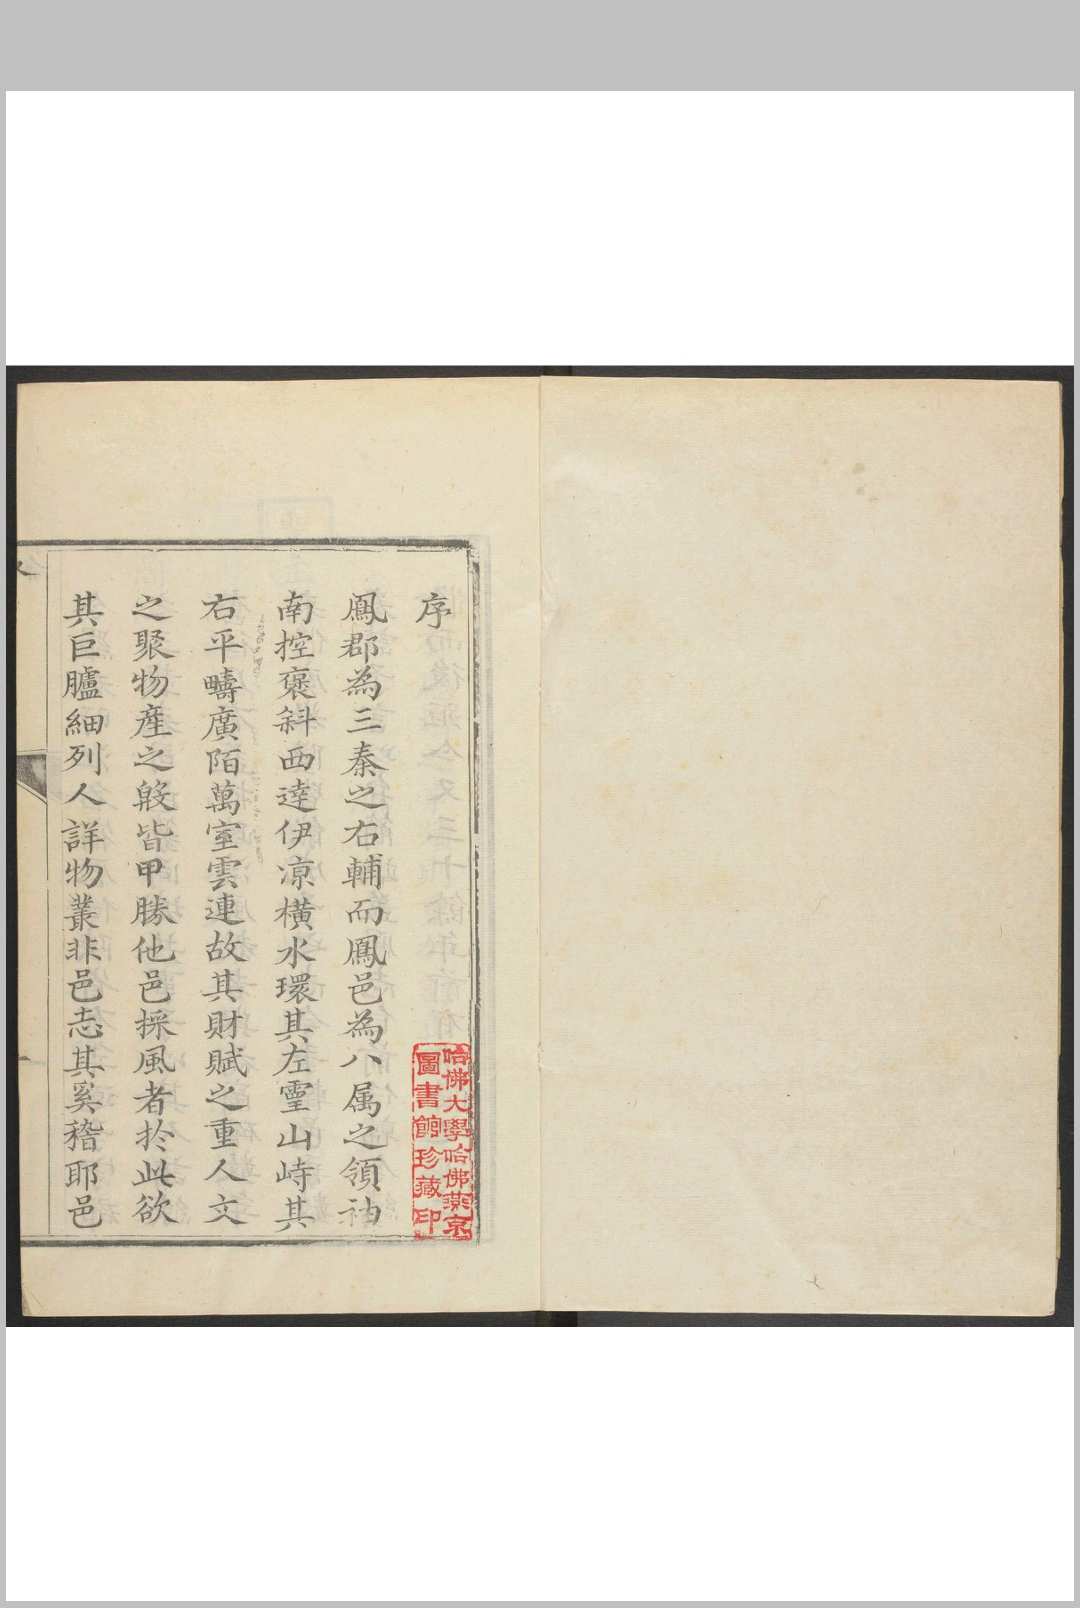 序
鳳郡為三秦之右輔而鳳邑為八属之領袖
南控褒斜西達伊凉橫水環其左靈山峙其
右平疇廣陌萬室雲連故其財賦之重人文
之聚物產之殷皆甲勝他邑採風者於此欲
其巨臚細列人詳物叢非邑志其奚稽耶邑
哈佛大學哈佛燕京
圖書館珍藏印